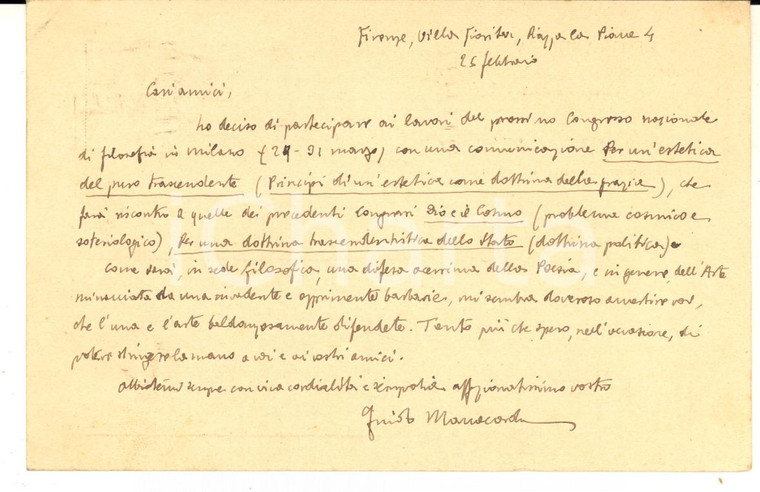 Firenze, Villa Fioriter, Piazza la Piave 4
25 febbraio
Cari amici,
ho deciso di partecipare ai lavori del prossimo Congresso nazionale
di filosofia in Milano (29-31 marzo) con una comunicazione Per un'estetica
del puro trascendente (Principi di un'estetica come dottrina della grazia), che
farà riscontro a quelle dei precedenti Congressi Dio e il Cosmo (problema cosmico e
soteriologico), Per una dottrina trascendentistica dello Stato (dottrina politica).
Come sarà, in sede filosofica, una difesa acerrima della Poesia, e in genere dell'Arte
minacciata da una invadente e opprimente barbarie, mi sembra doveroso avvertire voi,
che l'una e l'arte baldanzosamente difendete. Tanto più che spero, nell'occasione, di
potere stringere la mano a voi e ai vostri amici.
Abbiatemi sempre con viva cordialità e simpatia affezionatissimo vostro
Guido Manacorda